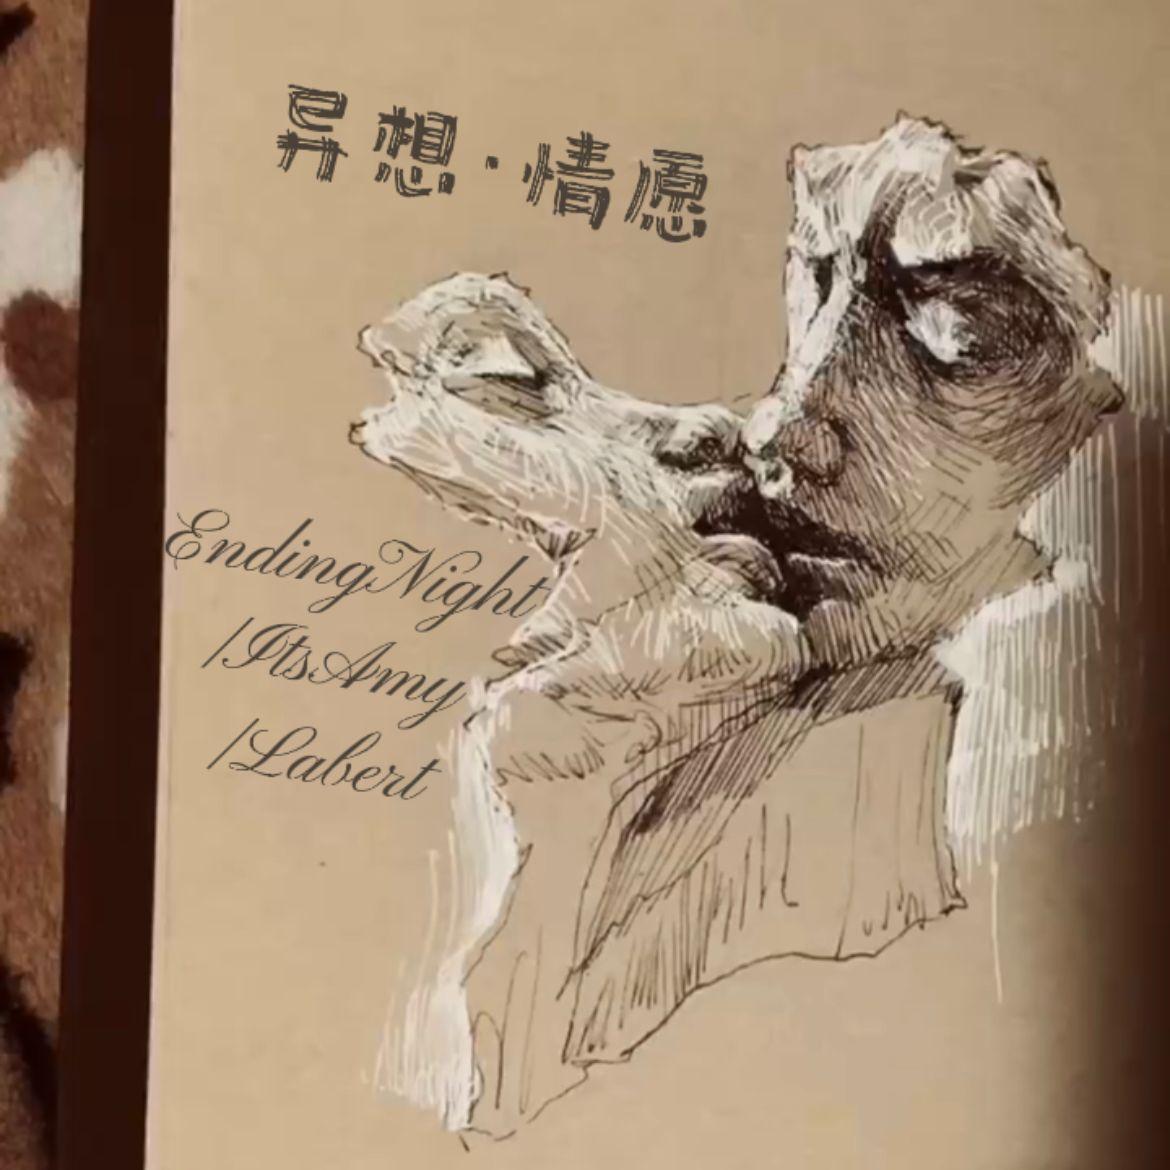 异想·情愿
EndingNight
/ItsAmy
/Labert